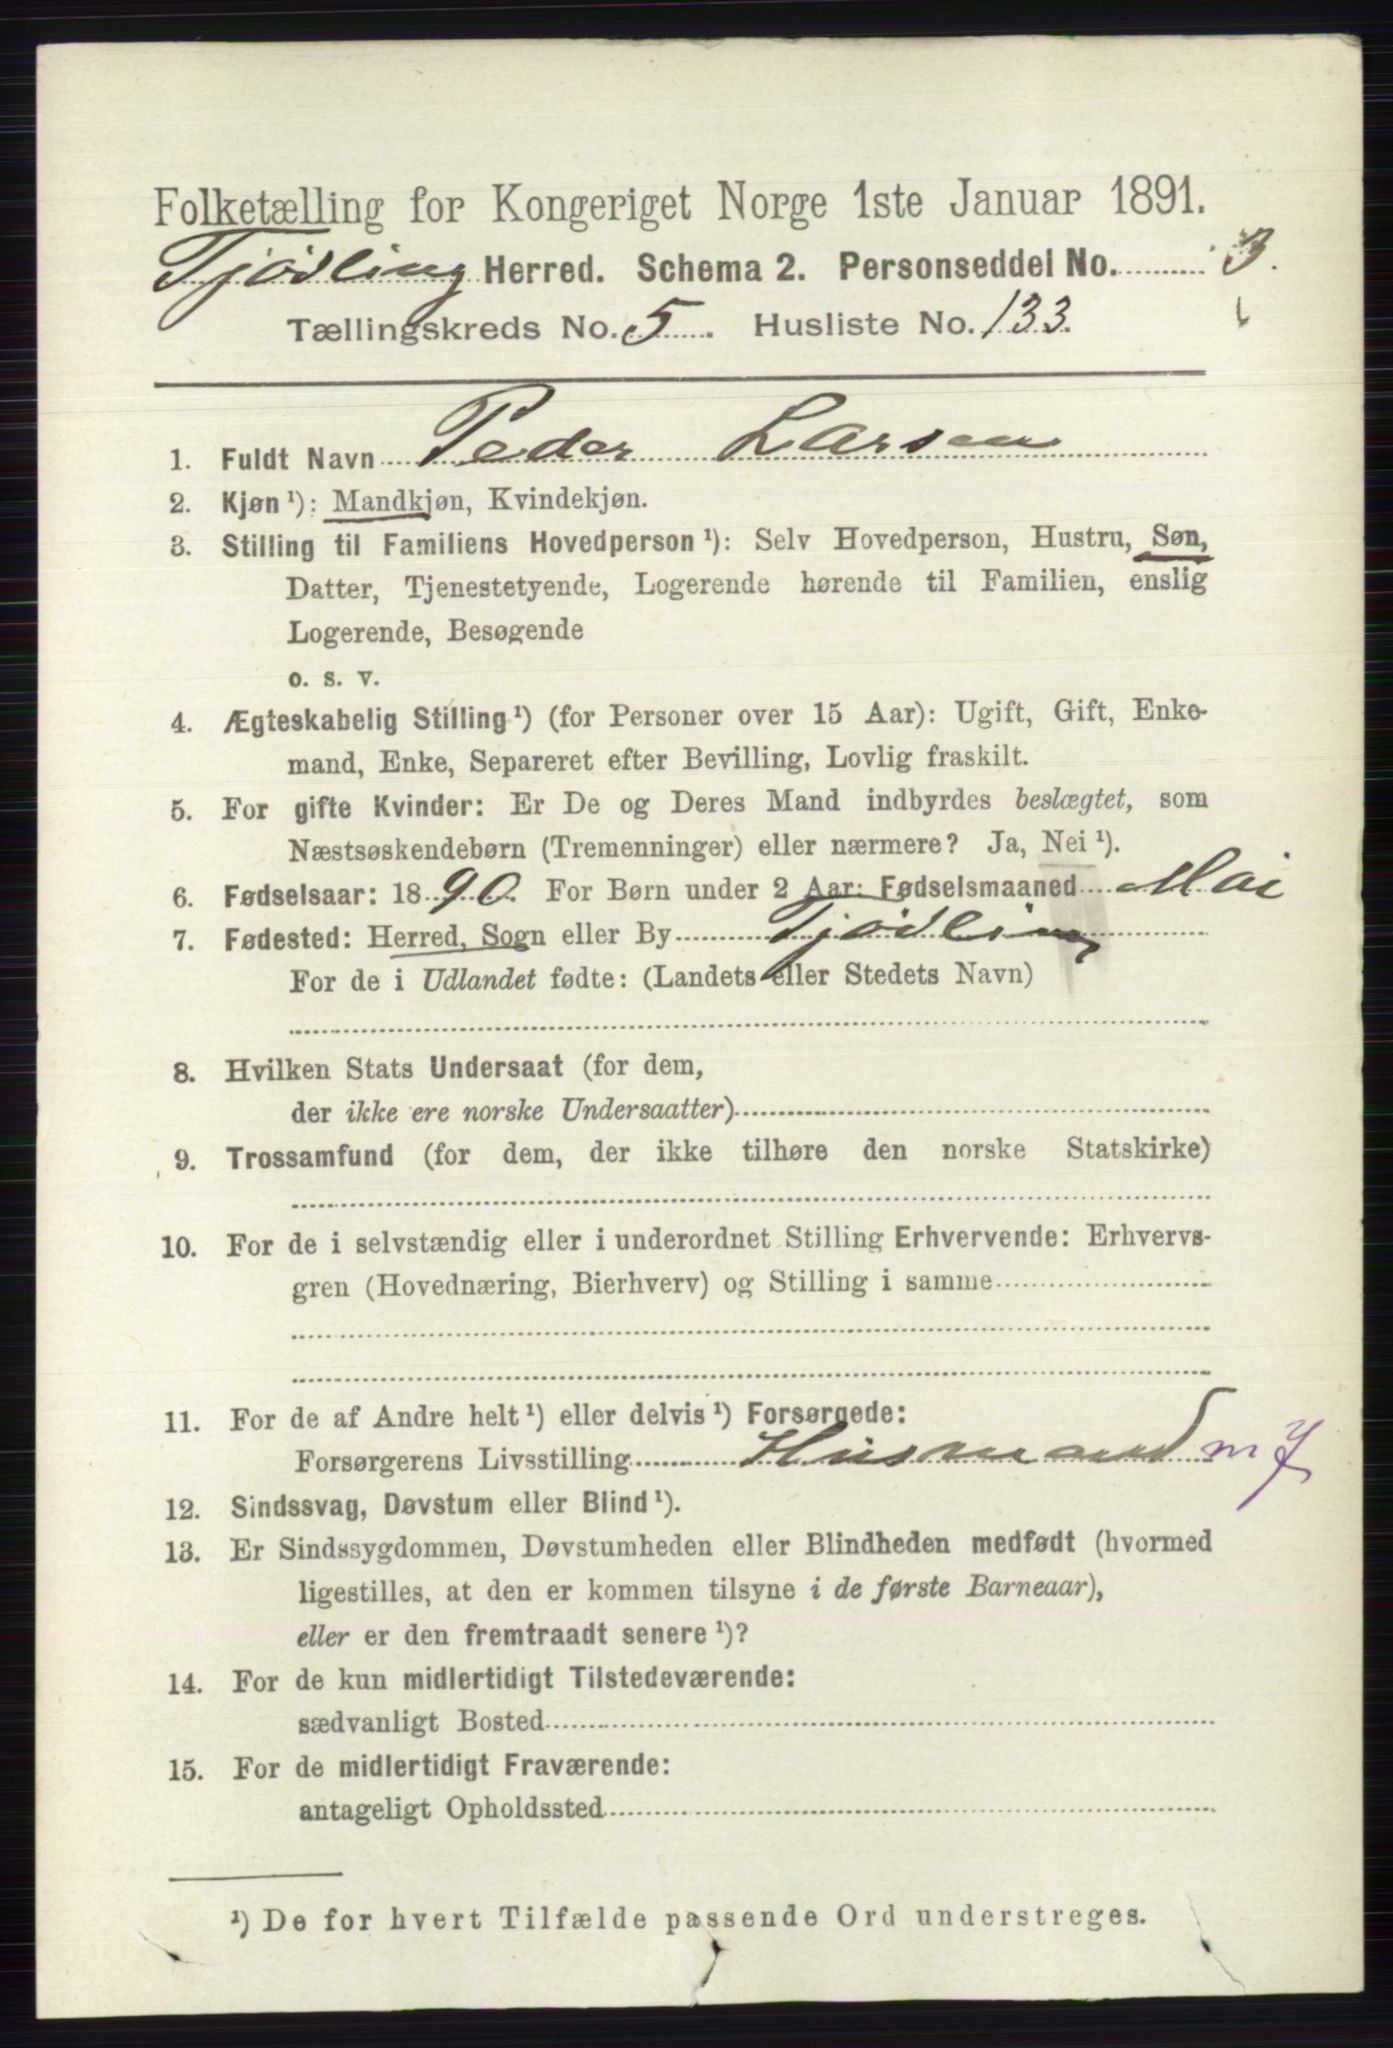 Folketælling for Kongeriget Norge 1ste Januar 1891.
Tjødling Herred. Schema 2. Personseddel No. 3.
Tællingskreds No. 5. Husliste No. 133.
1. Fuldt Navn Peder Larsen
2. Kjøn¹): Mandkjøn, Kvindekjøn.
3. Stilling til Familiens Hovedperson¹): Selv Hovedperson, Hustru, Søn,
Datter, Tjenestetyende, Logerende hørende til Familien, enslig
Logerende, Besøgende
o. s. v.
4. Ægteskabelig Stilling¹) (for Personer over 15 Aar): Ugift, Gift, Enke-
mand, Enke, Separeret efter Bevilling, Lovlig fraskilt.
5. For gifte Kvinder: Er De og Deres Mand indbyrdes beslægtet, som
Næstsøskendebørn (Tremenninger) eller nærmere? Ja, Nei¹).
6. Fødselsaar: 1890. For Børn under 2 Aar: Fødselsmaaned Mai
7. Fødested: Herred, Sogn eller By Tjødling
For de i Udlandet fødte: (Landets eller Stedets Navn)
8. Hvilken Stats Undersaat (for dem,
der ikke ere norske Undersaatter)
9. Trossamfund (for dem, der ikke tilhøre den norske Statskirke)
10. For de i selvstændig eller i underordnet Stilling Erhvervende: Erhvervs-
gren (Hovednæring, Bierhverv) og Stilling i samme
11. For de af Andre helt¹) eller delvis¹) Forsørgede:
Forsørgerens Livsstilling Husmand m J
12. Sindssvag, Døvstum eller Blind¹).
13. Er Sindssygdommen, Døvstumheden eller Blindheden medfødt (hvormed
ligestilles, at den er kommen tilsyne i de første Barneaar),
eller er den fremtraadt senere¹)?
14. For de kun midlertidigt Tilstedeværende:
sædvanligt Bosted
15. For de midlertidigt Fraværende:
antageligt Opholdssted
¹) De for hvert Tilfælde passende Ord understreges.